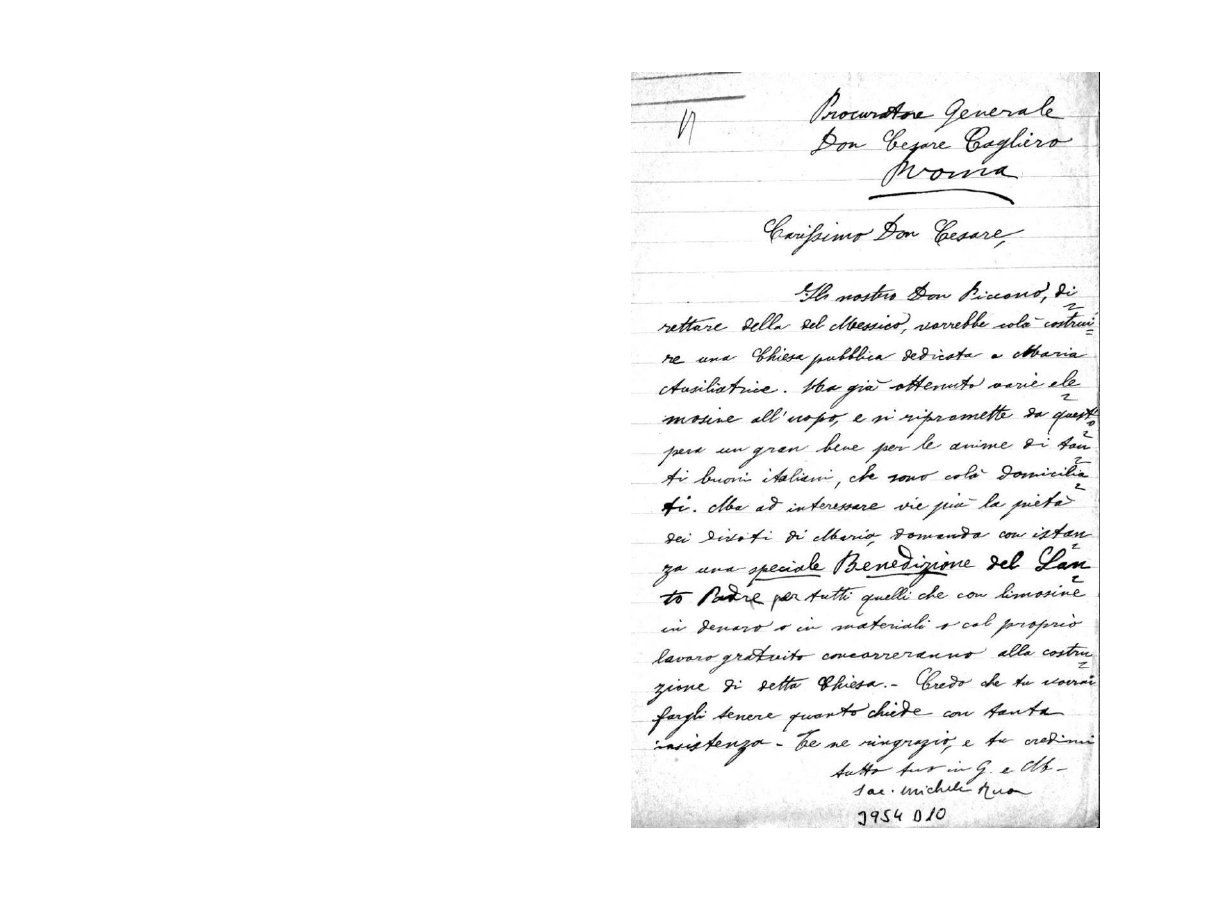 Procuratore Generale
Don Cesare Cagliero
Roma
Carissimo Don Cesare,
Il nostro Don Piccono, di
rettore della del Messico, vorrebbe colà costrui
re una Chiesa pubblica dedicata a Maria
Ausiliatrice. Ha già ottenuto varie ele
mosine all'uopo, e si ripromette da quest'o
pera un gran bene per le anime di tan
ti buoni italiani, che sono colà domicilia
ti. Ma ad interessare vie più la pietà
dei divoti di Maria, domanda con istan
za una speciale Benedizione del San
to Padre per tutti quelli che con limosine
in denaro o in materiali o col proprio
lavoro gratuito concorreranno alla costru
zione di detta Chiesa. - Credo che tu vorrai
fargli tenere quanto chiede con tanta
insistenza - Te ne ringrazio, e tu credimi
tutto tuo in G. e M -
Sac. Michele Rua
3954 D10